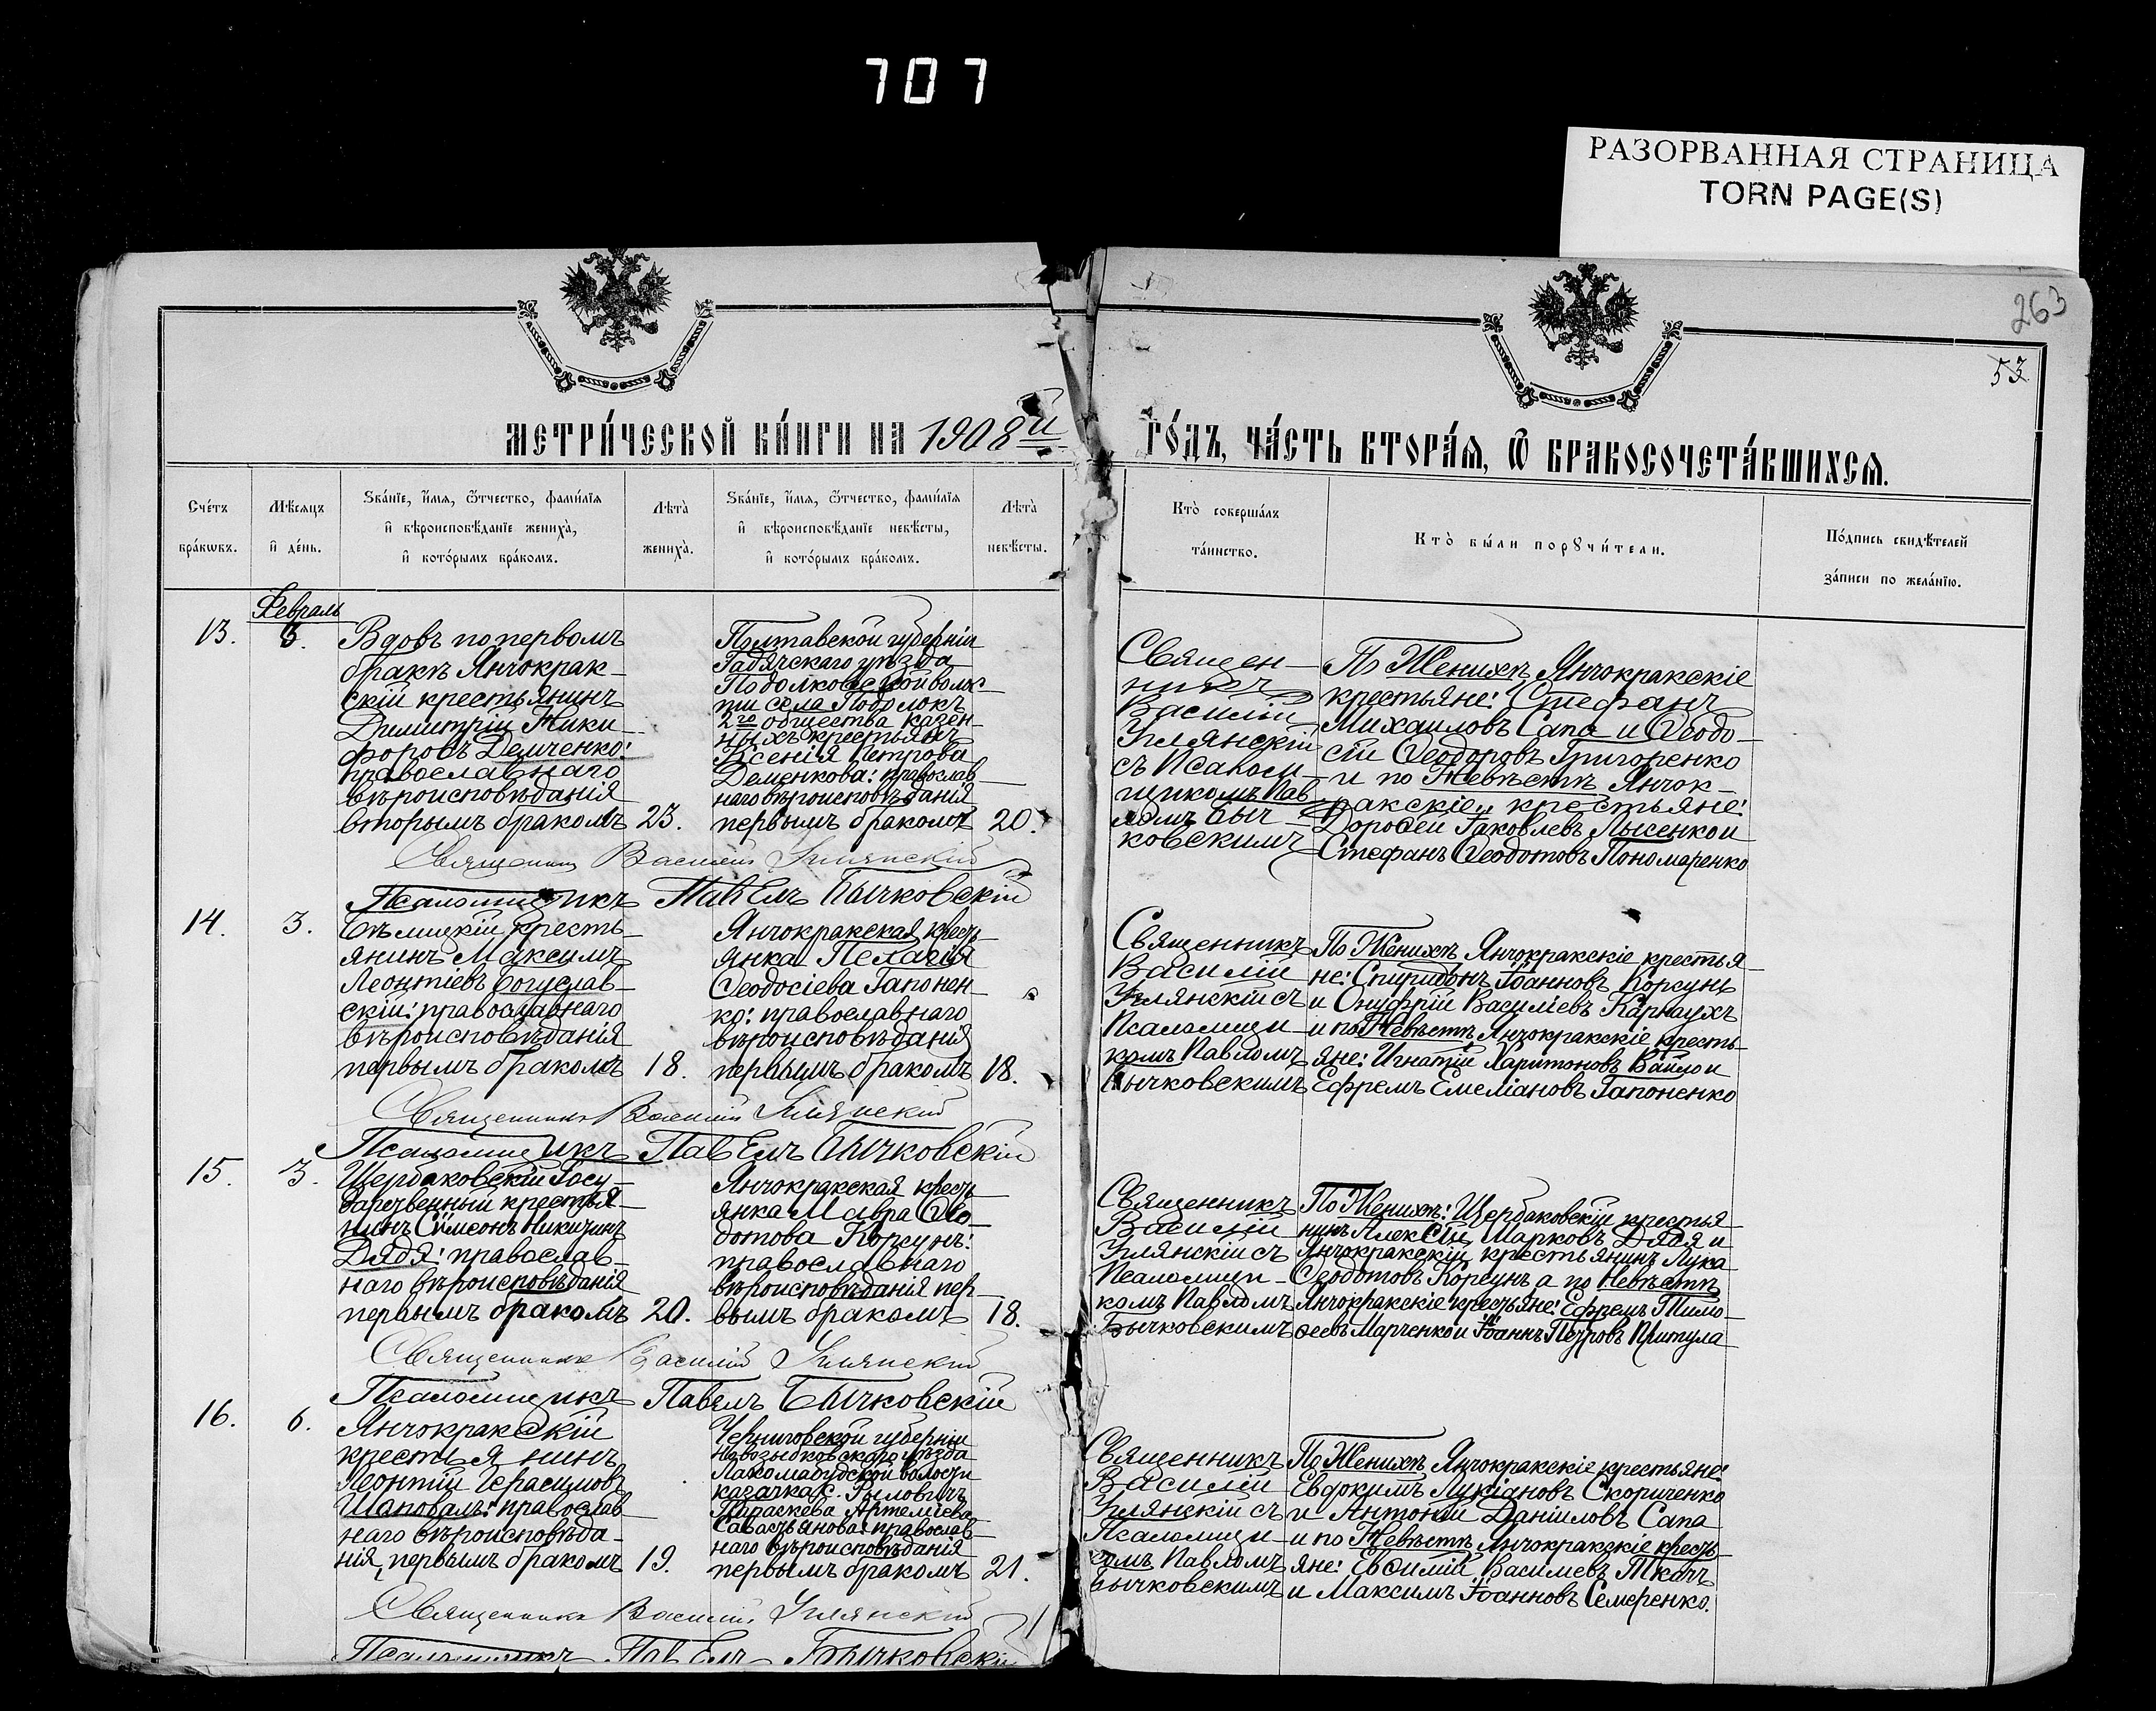 707
РАЗОРВАННАЯ СТРАНИЦА
TORN PAGE(S)
263
53
МЕТРИ́ЧЕСКОЙ КНИ́ГИ НА 1908й
ГО́ДЪ, ЧА́СТЬ ВТОРА́Я, Ѿ БРАКОСОЧЕТА́ВШИХСЯ.
Сче́тъ
бра́кѡвъ.
Мѣ́сяцъ
и҆ де́нь.
Ѕва́нїе, и҆́мя, ѻ҆́тчество, фами́лїя
и҆ вѣроисповѣ́данїе жениха̀,
и҆ кото́рымъ бра́комъ.
Лѣ́та
жениха̀.
Ѕва́нїе, и҆́мя, ѻ҆́тчество, фами́лїя
и҆ вѣроисповѣ́данїе невѣ́сты,
и҆ кото́рымъ бра́комъ.
Лѣ́та
невѣ́сты.
Кто̀ соверша́лъ
та́инство.
Кто̀ бы́ли порꙋчи́тели.
По́дпись свидѣ́телей
за́писи по жела́нїю.
Февраль
13.
3.
Вдовъ по первомъ
бракѣ Янчокрак-
скій крестьянинъ
Димитрій Ники-
форовъ Демченко:
православнаго
вѣроисповѣданія
вторымъ бракомъ
23.
Полтавской губерніи
Гадячскаго уѣзда
волос-
ти села Подолокъ
2го общества казен-
ныхъ крестьянъ
Ксенія Петрова
Деменкова: православ-
наго вѣроисповѣданія
первымъ бракомъ
20.
Священ-
никъ
Василій
Улянскій
съ Псалом-
щикомъ Пав-
ломъ Быч-
ковскимъ
По Женихѣ Янчокракскіе
крестьяне: Стефанъ
Михаиловъ Сапа и Ѳеодо-
сій Ѳеодоровъ Григоренко
и по Невѣстѣ Янчок-
ракскіе крестьяне:
Доровей Іаковлевъ Лысенко и
Стефанъ Ѳеодотовъ Пономаренко
Священникъ Василій Улянскій
Псаломщикъ Павелъ Бычковскій
14.
3.
Бѣлицкій кресть-
янинъ Максимъ
Леонтіевъ Богуслав-
скій: православнаго
вѣроисповѣданія
первымъ бракомъ
18.
Янчокракская кресть-
янка Пелагія
Ѳеодосіева Гапонен-
ко: православнаго
вѣроисповѣданія
первымъ бракомъ
18.
Священникъ
Василій
Улянскій съ
Псаломщи-
комъ Павломъ
Бычковскимъ
По Женихѣ Янчокракскіе крестья-
не: Спиридонъ Іоанновъ Корсунъ
и Онуфрій Василіевъ Карнаухъ
и по Невѣстѣ Янчокракскіе кресть-
яне: Игнатій Харитоновъ и
Ефремъ Емеліановъ Гапоненко
Священникъ Василій Улянскій
Псаломщикъ Павелъ Бычковскій
15.
3.
Щербаковскій Госу-
дарственный крестья-
нинъ Сѵмеонъ Никитинъ
Дядя: православ-
наго вѣроисповѣданія
первымъ бракомъ
20.
Янчокракская кресть-
янка Мавра Ѳео-
дотова Корсунъ:
православнаго
вѣроисповѣданія пер-
вымъ бракомъ
18.
Священникъ
Василій
Улянскій съ
Псаломщи-
комъ Павломъ
Бычковскимъ
По Женихѣ: Щербаковскіе крестья-
нинъ Алексій Марковъ Дядя и
Янчокракскій крестьянинъ Лука
Ѳеодотовъ Корсунъ а по Невѣстѣ
Янчокракскіе крестьяне: Ефремъ Тимо-
ѳеевъ Марченко и Іоаннъ Петровъ Притула
Священникъ Василій Улянскій
Псаломщикъ Павелъ Бычковскій
16.
6.
Янчокракскій
крестьянинъ
Леонтій Герасимовъ
Шаповалъ: православ-
наго вѣроисповѣда-
нія, первымъ бракомъ
19.
Черниговской губерніи
Новозыбковскаго уѣзда
волости
казачка с. Рыловичъ
Параскева Артеміева
Савастьянова: православ-
наго вѣроисповѣданія
первымъ бракомъ
21.
Священникъ
Василій
Улянскій съ
Псаломщи-
комъ Павломъ
Бычковскимъ
По Женихѣ Янчокракскіе крестьяне:
Евдокимъ Лукіановъ Скориченко
и Антоній Даніиловъ Сапа
и по Невѣстѣ Янчокракскіе кресть-
яне: Евѳимій Василіевъ Ткачъ
и Максимъ Іоанновъ Семеренко.
Священникъ Василій Улянскій
Псаломщикъ Павелъ Бычковскій